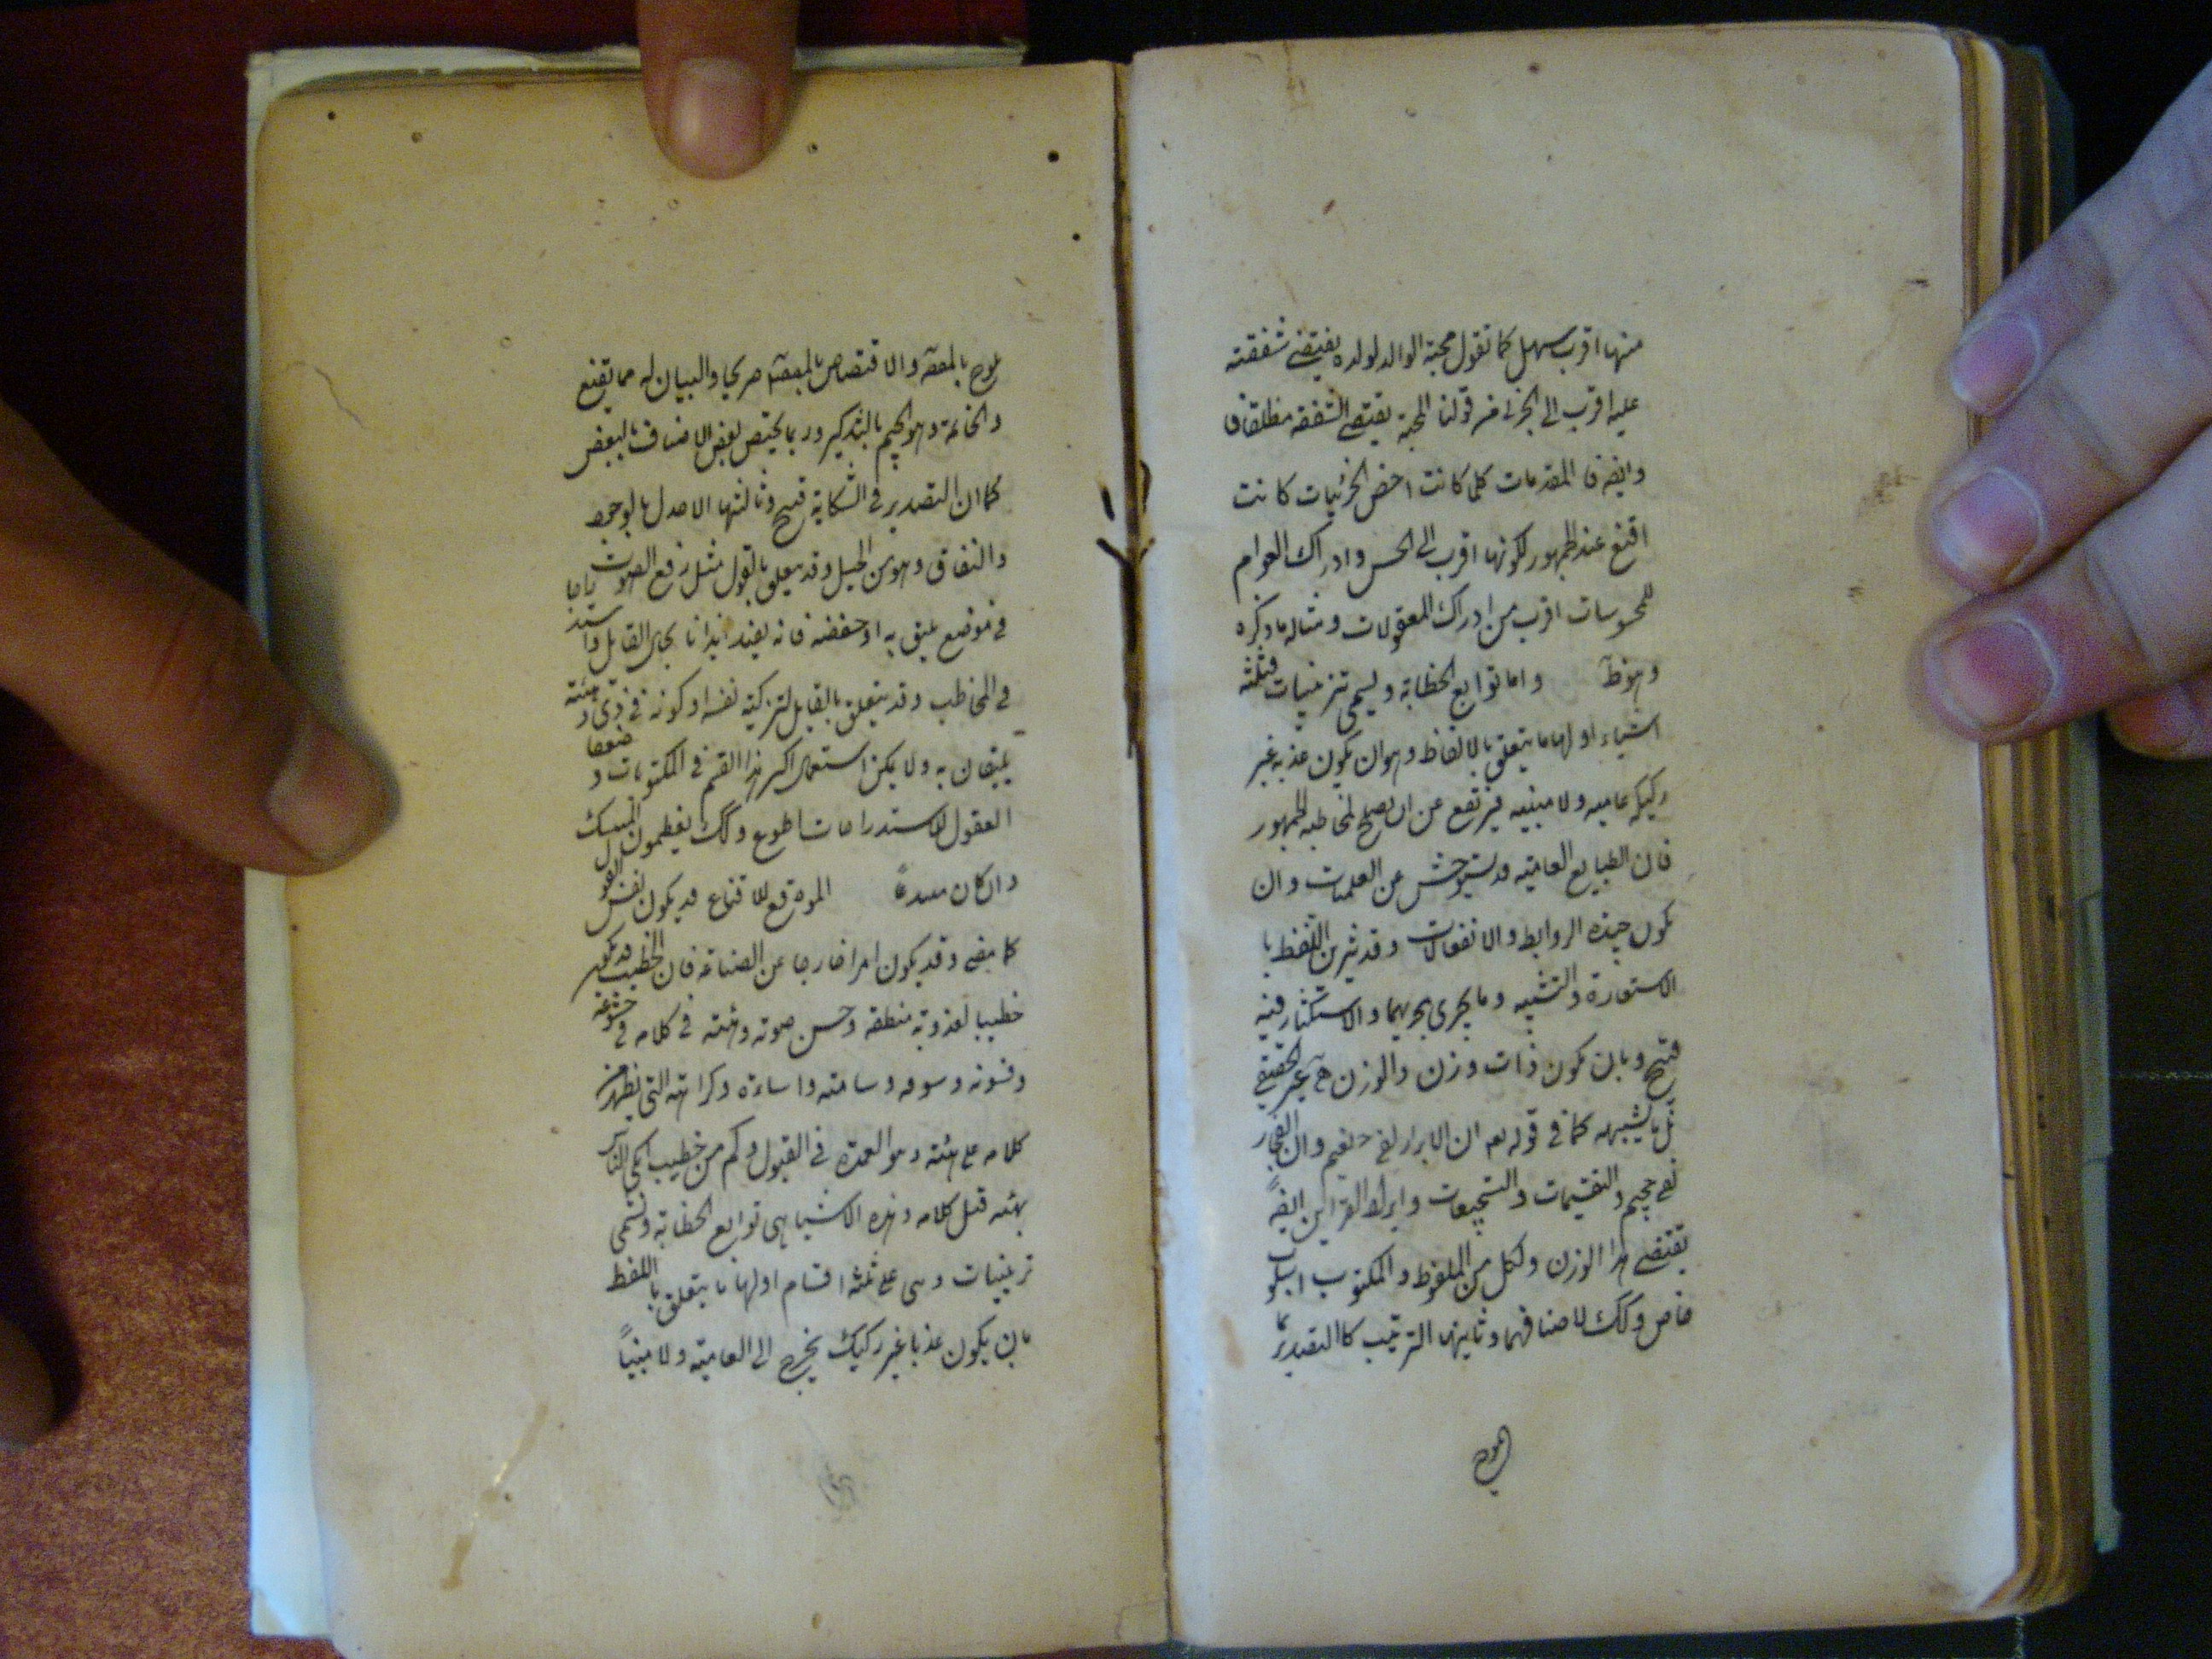 منها اقرب سهل كما تقول محبة الوالد لولده يقتضي شفقته
عليه اقرب الى الجزئي من قولنا المحبة يقتضي الشفقه مطلقا
وايضا فان المقدمات كلما كانت اخص الجزئيات كانت
اقنع عند الجمهور لكونها اقرب الى الحس وادراك العوام
للمحسوسات اقرب من ادراك المعقولات ومثاله ما ذكره
وهو ظ واما توابع الخطابة ويسمى تزيينات فثلثة
اشياء اولها ما يتعلق بالالفاظ وهو ان يكون عذبه غير
ركيكه عاميه ولا متينه فيرتفع عن ان يصلح لمخاطبه الجمهور
فان الطبايع العاميه قد يستوحش عن العلميات وان
يكون جيده الروابط والانفعالات وقد يزين اللفظ با
الاستعارة والتشبيه وما يجرى مجريهما والاستكثار فيه
قبيح وبان يكون ذات وزن والوزن هى غير الحقيقي
بل ما يشبهه كما في قوله تع ان الابرار لفي نعيم وان الفجار
لفي جحيم والتقسيمات والتسجيعات وايراد القراين ايضا
يقتضي هذا الوزن ولكل من الملفوظ والمكتوب اسلوب
خاص وكك لاصنافهما وثانيها الترتيب كالتصدير بما
يلوح
يلوح بالمقصد والاقتصاص بالمقصد صريحا والبيان له مما يقنع
والخاتمة وهو الجمع بالتذكير وربما يختص بعض الاصناف بالبعض
كما ان التصدير في الشكاية قبيح وثالثها الاخذ بالوجوه
والنفاق وهو من الحيل وقد يتعلق بالقول مثل رفع الصوت
في موضع يليق به او خفضه فانه يفيد ايذانا بحال القايل واستدراجا
في المخاطب وقد يتعلق بالقايل لتزكية نفسه او كونه في زى وهيئته
يليقان به ولا يمكن استعمال اكثر هذا القسم في المكتوبات و ضعفا
العقول للاستدراجات اطوع وكك يعظمون
وان كان الموقع للاقناع قد يكون نفس القول
كما مضى وقد يكون امرا خارجا عن الصناعة فان الخطيب قد يكون
خطيبا لعذوبة منطقه وحسن صوته وهيئته في كلامه في خشوعه
التي يظهر من
كلامه على هيئته وهو العمدة في القبول وكم من خطيب
بهيئته قبل كلامه وهذه الاشيا هى توابع الخطابة وتسمى
تزيينيات وهى على ثلثة اقسام اولها ما يتعلق باللفظ
بان يكون عذبا غير ركيك يخرج الى العامية ولا متينا